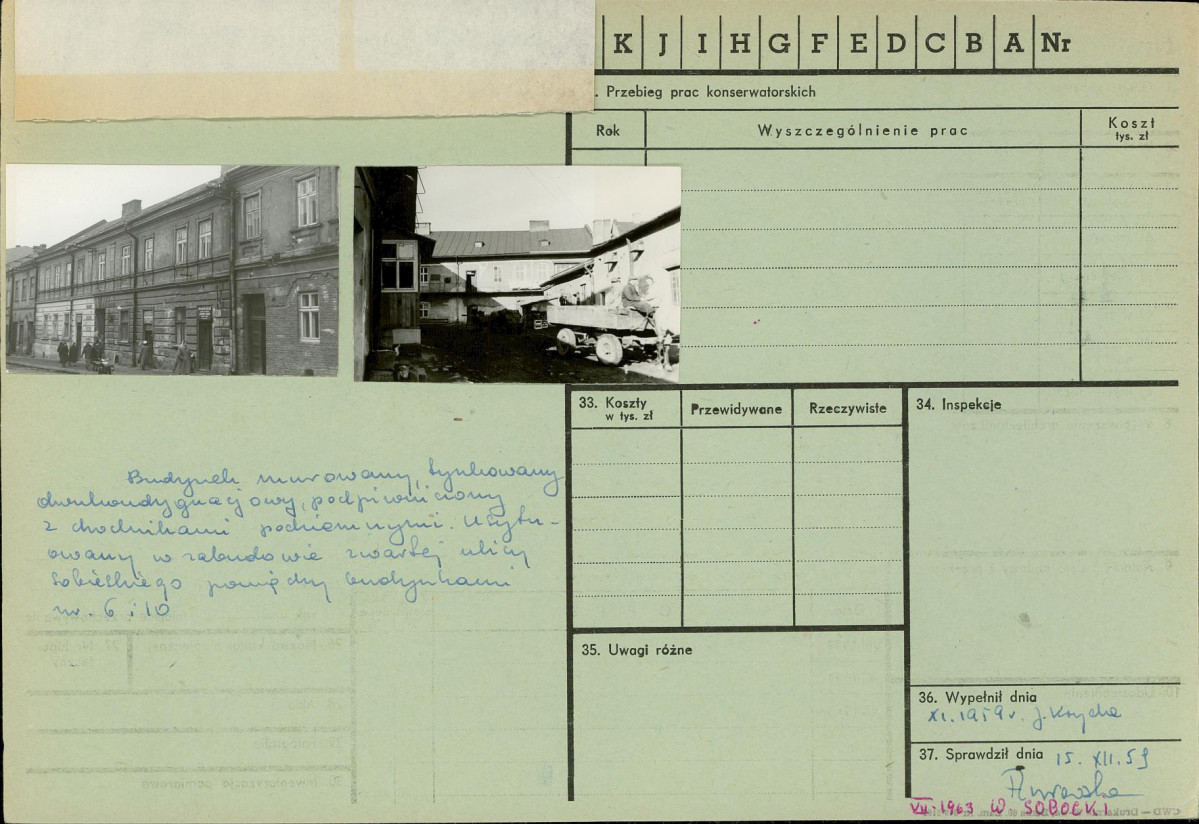 K J I H G F E D C B A Nr
. Przebieg prac konserwatorskich
Rok Wyszczególnienie prac Koszt tys. zł
33. Koszty w tys. zł Przewidywane Rzeczywiste
34. Inspekcje
Budynek murowany, tynkowany
dwukondygnacjowy, podpiwniczony
z chodnikami podziemnymi. Usytu-
owany w zabudowie zwartej ulicy
Sobieskiego pomiędzy budynkami
nr. 6 i 10
35. Uwagi różne
36. Wypełnił dnia
XI. 1959 r. J.
37. Sprawdził dnia 15. XII. 59
VII. 1963 W. SOBOCKI